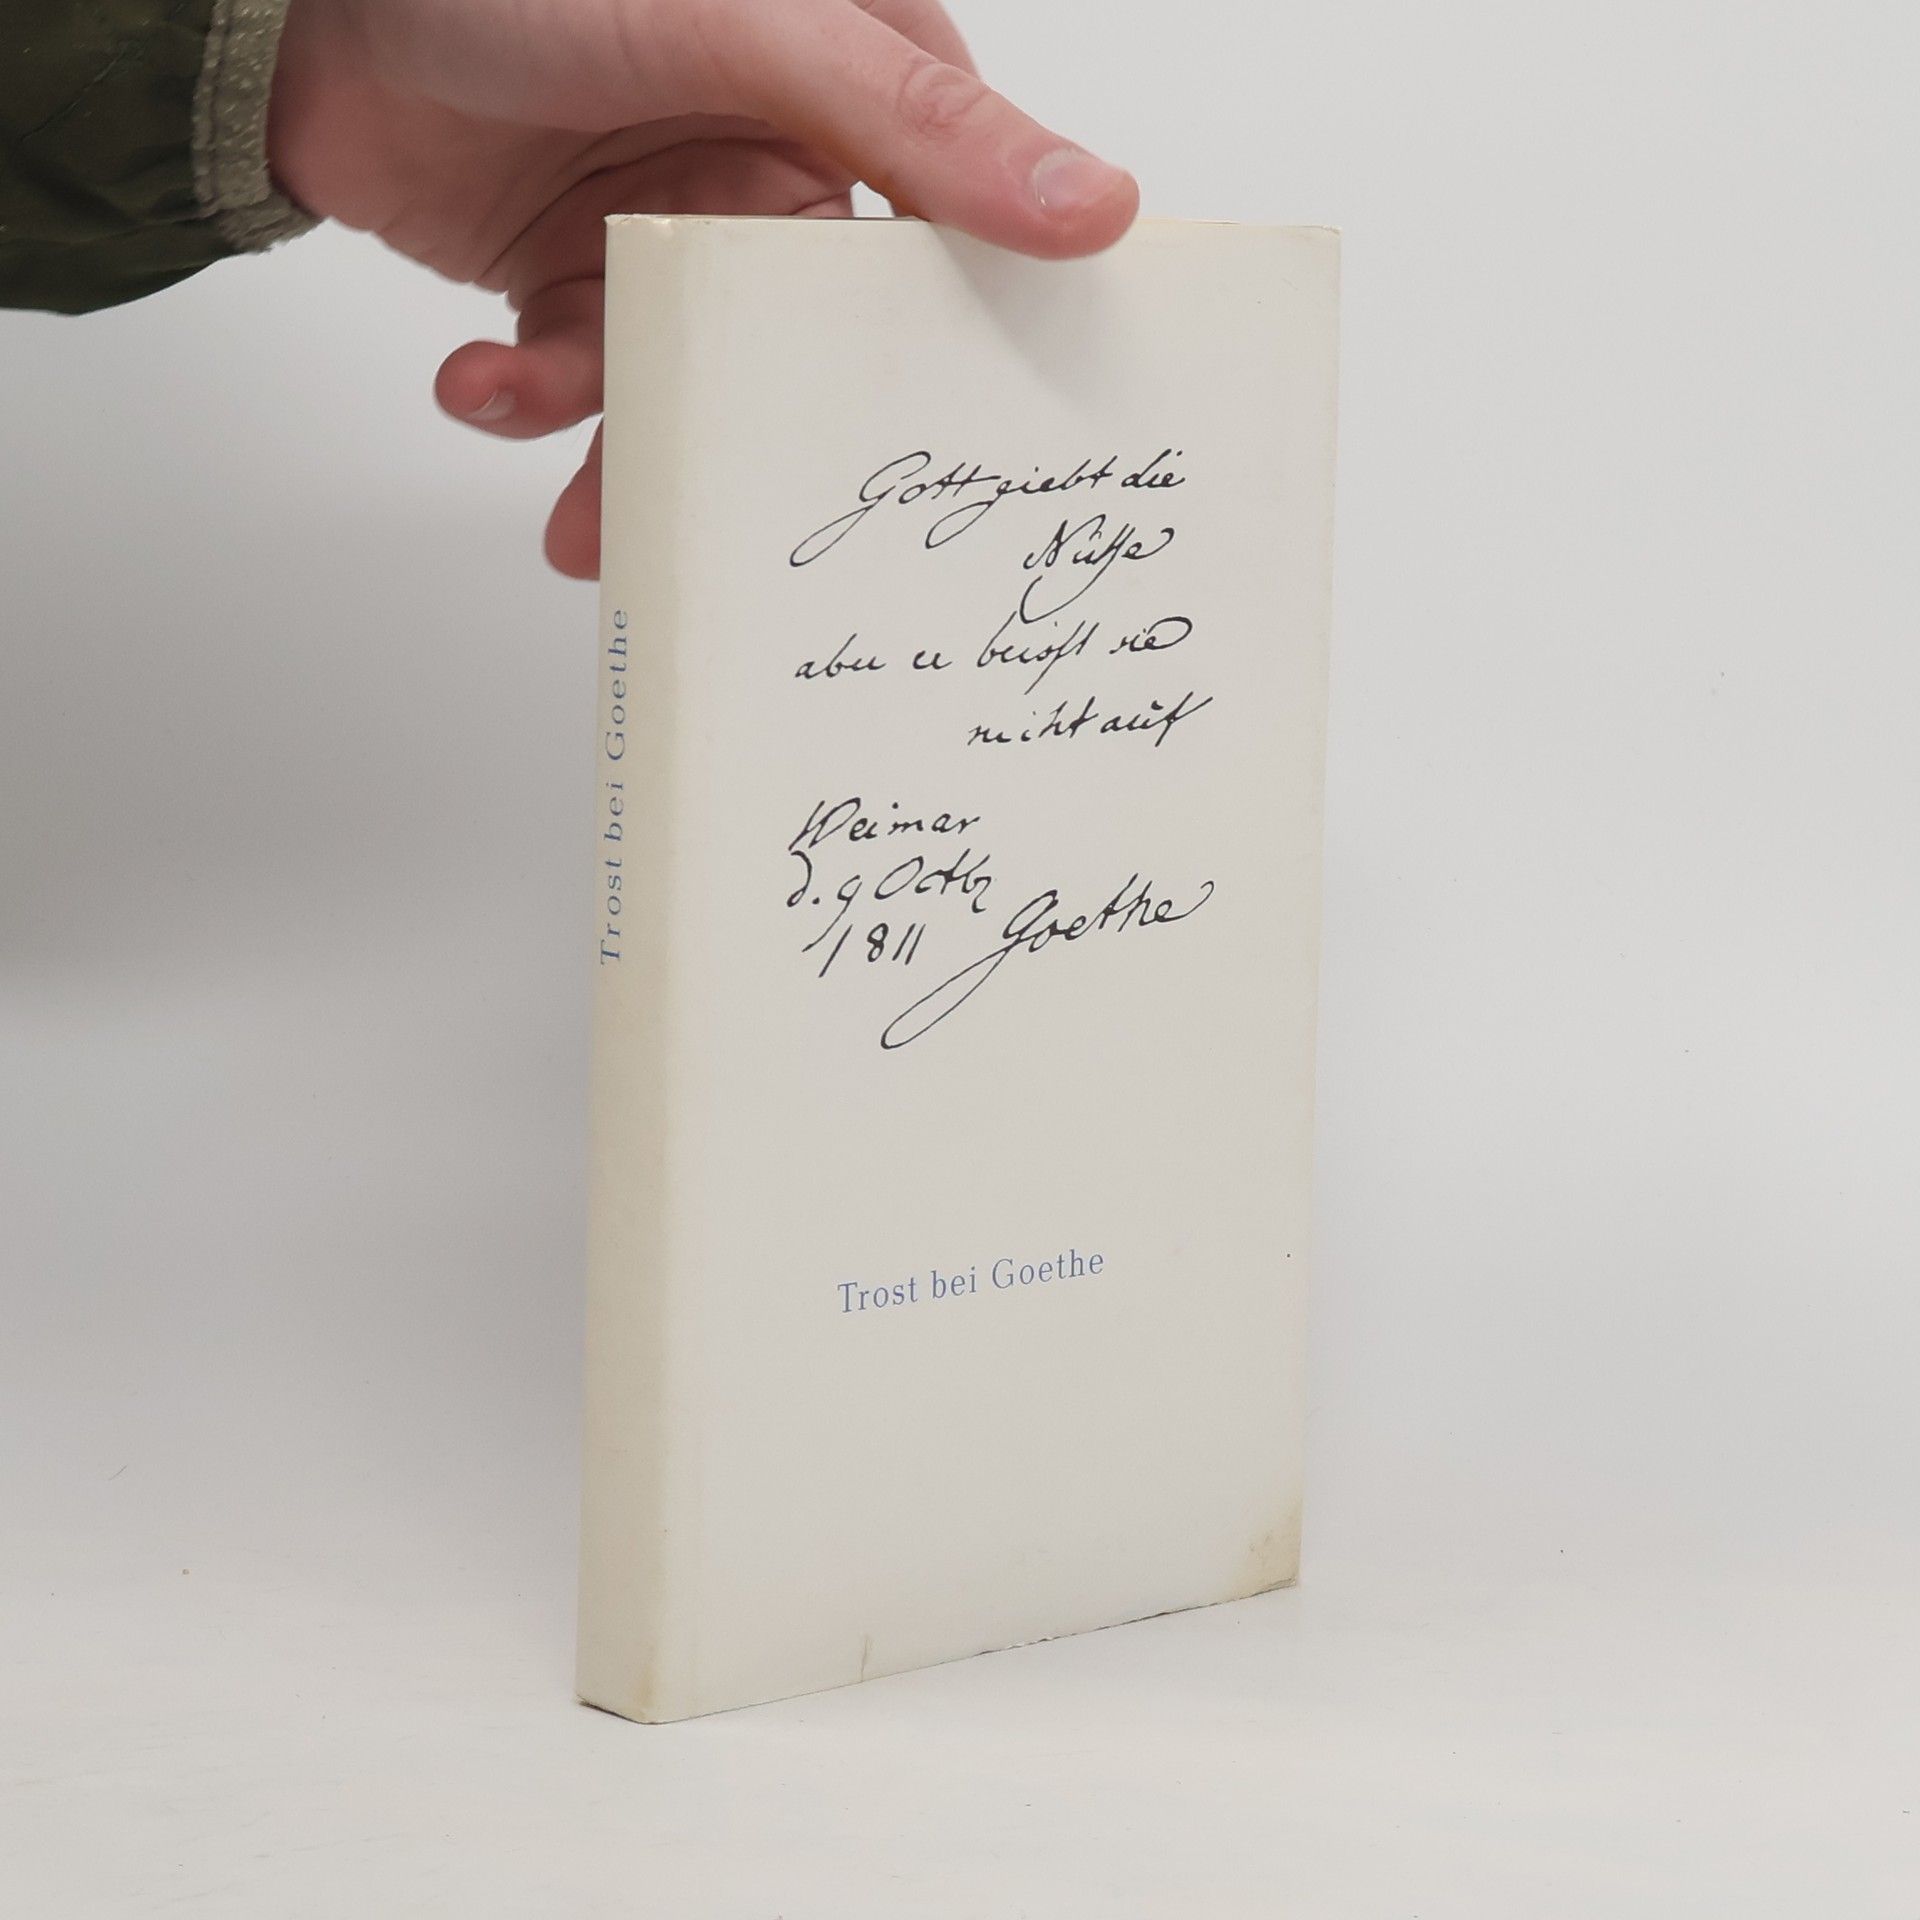 Gott giebt die
Nüsse
aber er beisst sie
nicht auf
Weimar
d. 9 Octbr
1811 Goethe
Trost bei Goethe
Trost bei Goethe